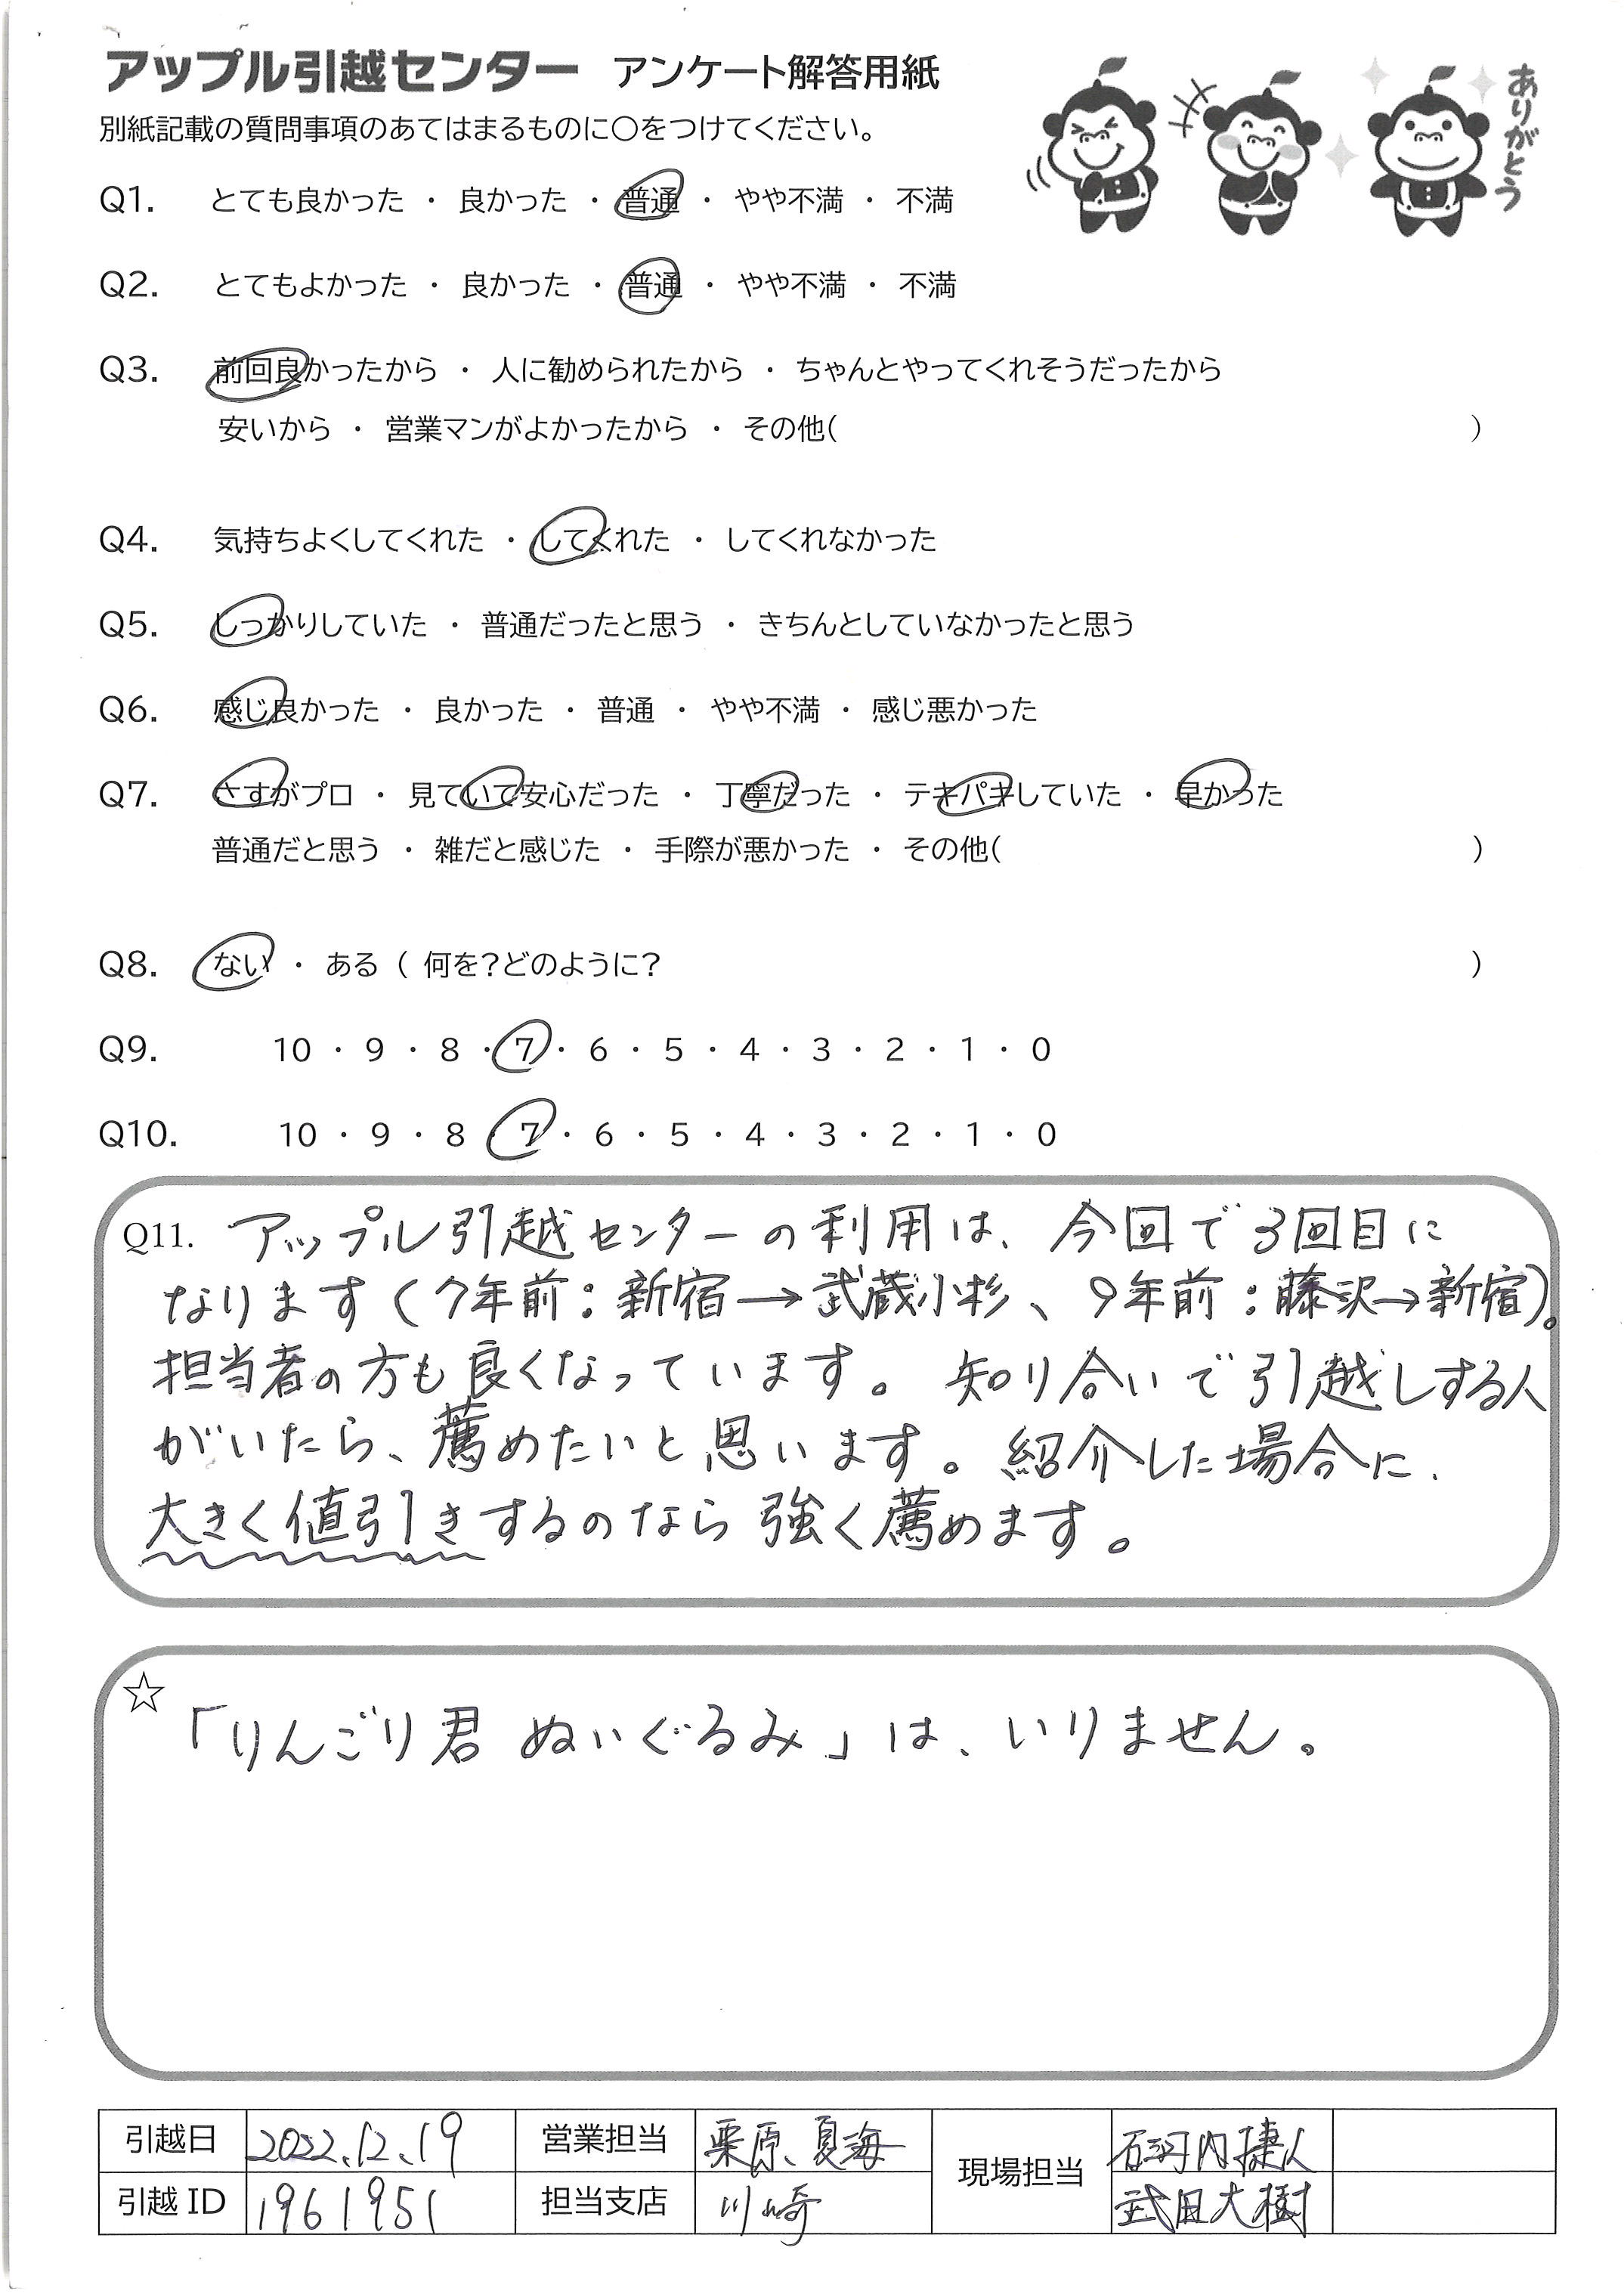 アップル引越センター アンケート解答用紙
別紙記載の質問事項のあてはまるものに○をつけてください。
ありがとう
Q1. とても良かった ・ 良かった ・ 普通 ・ やや不満 ・ 不満
Q2. とてもよかった ・ 良かった ・ 普通 ・ やや不満 ・ 不満
Q3. 前回良かったから ・ 人に勧められたから ・ ちゃんとやってくれそうだったから
安いから ・ 営業マンがよかったから ・ その他( )
Q4. 気持ちよくしてくれた ・ してくれた ・ してくれなかった
Q5. しっかりしていた ・ 普通だったと思う ・ きちんとしていなかったと思う
Q6. 感じ良かった ・ 良かった ・ 普通 ・ やや不満 ・ 感じ悪かった
Q7. さすがプロ ・ 見ていて安心だった ・ 丁寧だった ・ テキパキしていた ・ 早かった
普通だと思う ・ 雑だと感じた ・ 手際が悪かった ・ その他( )
Q8. ない ・ ある ( 何を?どのように? )
Q9. 10 ・ 9 ・ 8 ・ 7 ・ 6 ・ 5 ・ 4 ・ 3 ・ 2 ・ 1 ・ 0
Q10. 10 ・ 9 ・ 8 ・ 7 ・ 6 ・ 5 ・ 4 ・ 3 ・ 2 ・ 1 ・ 0
Q11. アップル引越センターの利用は、今回で3回目に
なります(7年前:新宿→武蔵小杉、9年前:藤沢→新宿)。
担当者の方も良くなっています。知り合いで引越しする人
がいたら、薦めたいと思います。紹介した場合に、
大きく値引きするのなら強く薦めます。
☆
「りんごり君 ぬいぐるみ」は、いりません。
引越日 2022.12.19 営業担当 栗原、夏海 現場担当 石河内捷人
引越 ID 1961951 担当支店 川崎 武田大樹